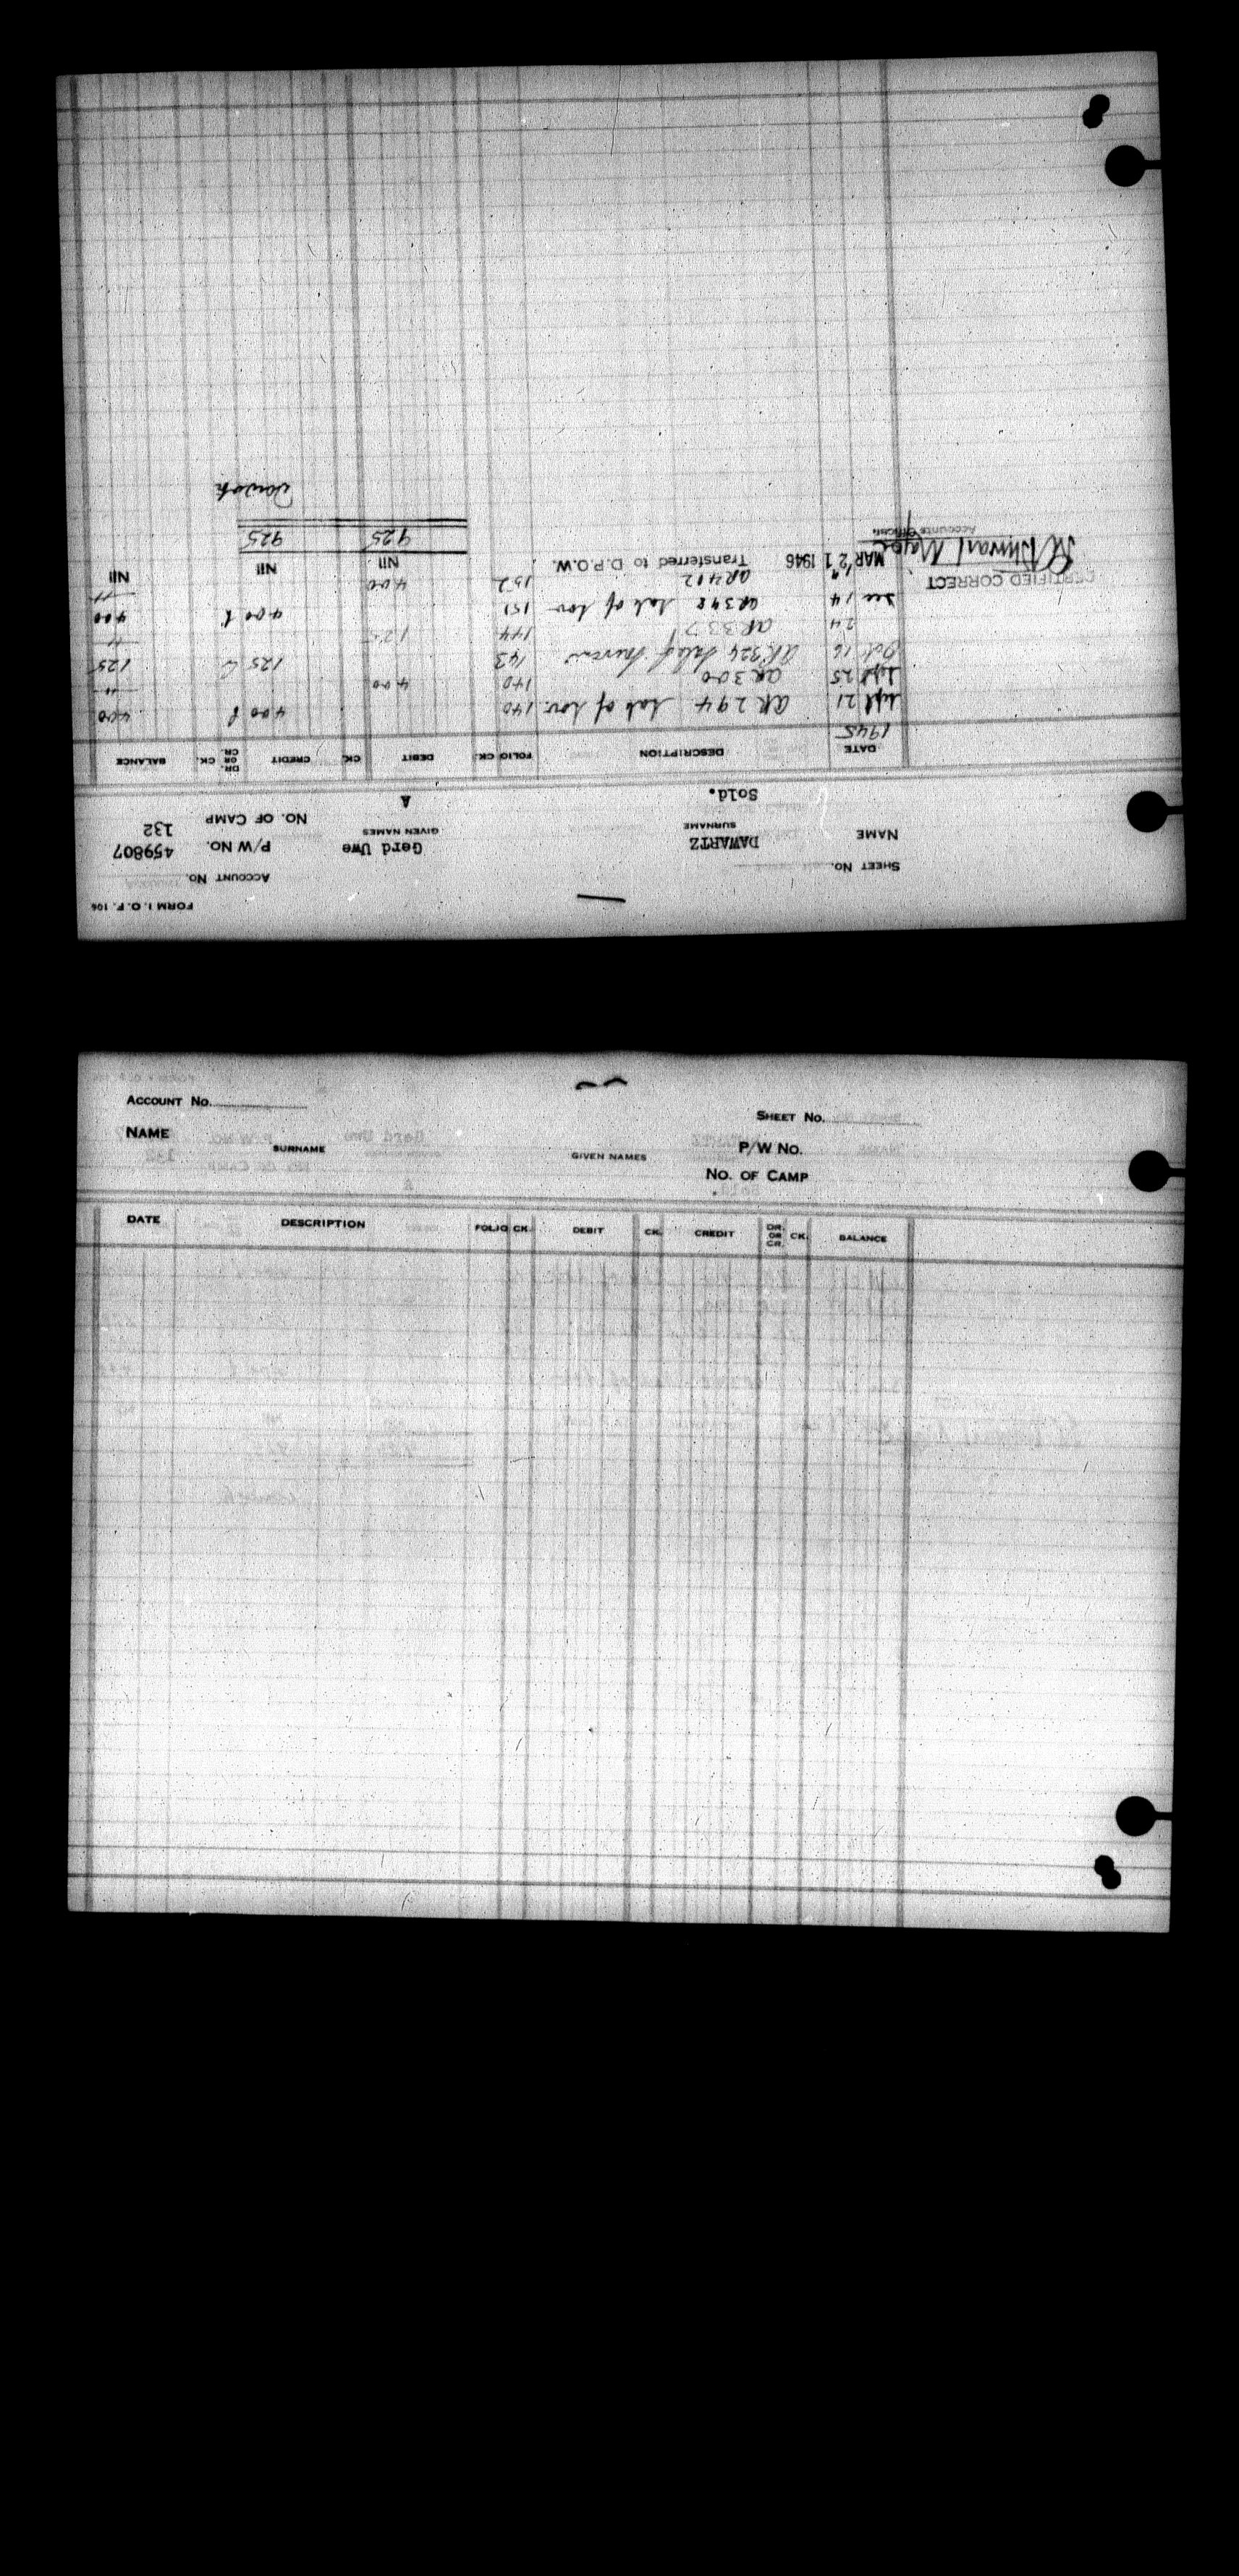 FORM I.O.F. 106
SHEET NO. ACCOUNT NO.
NAME DAWARTZ Gerd Uwe P/W NO. 459807
SURNAME GIVEN NAMES
NO. OF CAMP 132
Sold. A
DATE DESCRIPTION FOLIO CK. DEBIT CK. CREDIT DR. OR CR. CK. BALANCE
1945
Sept 21 AR 294 Lab of Nov. 140 400 400
Sept 25 AR 300 140 400
Oct 16 AR 324 143 125 125
24 AR 337 144 125
Dec 14 AR 348 Lab of Nov 151 400 400
19 AR 412 152 400
CERTIFIED CORRECT
MAR 21 1946 Transferred to D.P.O.W. Nil Nil Nil
Major
Accounts Officer.
925 925
ACCOUNT NO. SHEET NO.
NAME
SURNAME GIVEN NAMES P/W NO.
NO. OF CAMP
DATE DESCRIPTION FOLIO CK. DEBIT CK. CREDIT DR. OR CR. CK. BALANCE